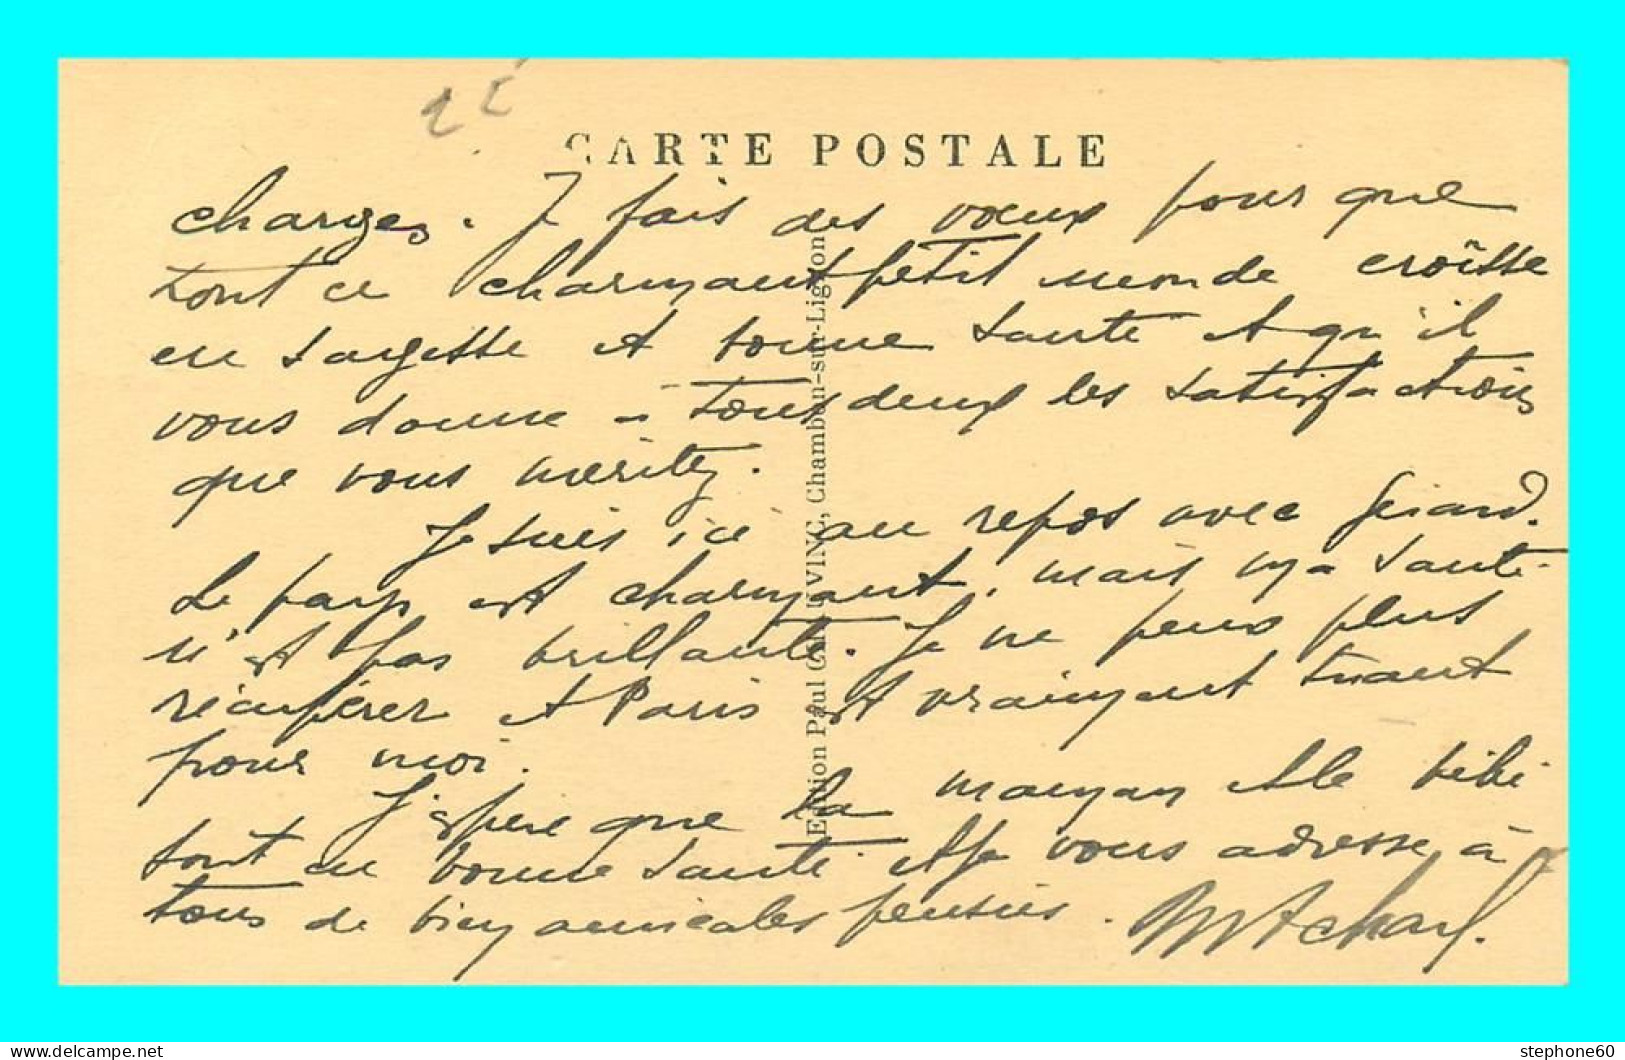 CARTE POSTALE
charges. Je fais des vœux pour que
tout ce charmant petit monde croîsse
en sagesse et bonne santé et qu'il
vous donne à tous deux les satisfactions
que vous méritez.
Je suis ici au repos avec Gérard.
Le pays est charmant, mais ma santé
n'est pas brillante. Je ne peux plus
récupérer et Paris est vraiment tuant
pour moi.
J'espère que la maman et le bébé
sont en bonne santé et je vous adresse à
tous de bien amicales pensées.
Edition Paul Chambon-sur-Lignon
stephone60